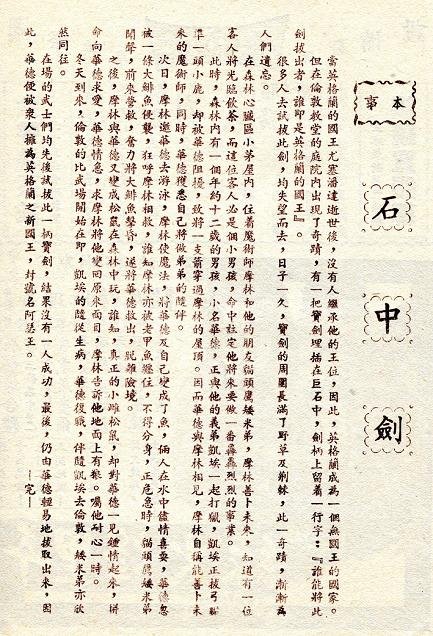 本事
石中劍
當英格蘭的國王尤塞潘達逝世後，沒有人繼承他的王位，因此，英格蘭成為一個無國王的國家。
但在倫敦教堂的庭院內出現了奇蹟，有一把寶劍埋插在巨石中，劍柄上留着一行字：『誰能將此
劍拔出者，誰即是英格蘭的國王』。
很多人去試拔此劍，均失望而去，日子一久，寶劍的周圍長滿了野草及荊棘，此一奇蹟，漸漸為
人們遺忘。
在森林心臟區小茅屋內，住着魔術師摩林和他的朋友貓頭鷹矮米弟，摩林善卜未來，知道有一位
客人將光臨飲茶，而這位客人必是個小男孩，命中註定他將來要做一番轟轟烈烈的事業。
此時，森林內有一個年約十二歲的男孩，小名華德，正與他的義弟凱埃一起打獵，凱埃正拔弓瞄
準一頭小鹿，却被華德阻擾，致將一支箭穿過摩林的屋頂。因而華德與摩林相見，摩林自稱能善卜未
來的魔術師，同時，華德獲悉自己將做弟弟的隨伴。
次日，摩林邀華德去游泳，摩林使魔法，將華德及自己變成了魚，倆人在水中儘情喜耍，華德忽
被一條大鯡魚侵襲，狂呼摩林相救，誰知摩林亦被老甲魚纏住，不得分身，正危急時，貓頭鷹矮米弟
聞聲，前來營救，奮力將大鯡魚擊昏，遂將華德救出，脫離險境。
之後，摩林與華德又變成松鼠在森林中玩，誰知，真正的小雌松鼠，却對華德一見鍾情起來，拼
命向華德求愛，華德情急，求摩林將他變回原來面目，摩林告訴他地面上有狼。囑他耐心一時。
冬天到來，倫敦的比武場開始在即，凱埃的隨從生病，華德復職，伴隨凱埃去倫敦，矮米弟亦欣
然同往。
在場的武士們均先後試拔此一柄寶劍，結果沒有一人成功，最後，仍由華德輕易地拔取出來，因
此，華德便被衆人擁為英格蘭之新國王，封號名阿瑟王。
—完—